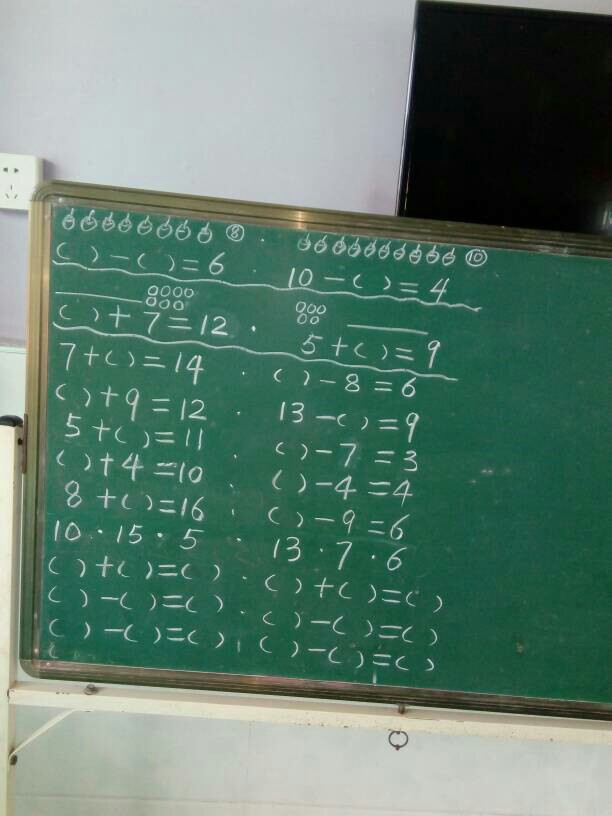 ⑧ · ⑩
( ) - ( ) = 6 · 10 - ( ) = 4
( ) + 7 = 12 · 5 + ( ) = 9
7 + ( ) = 14 · ( ) - 8 = 6
( ) + 9 = 12 · 13 - ( ) = 9
5 + ( ) = 11 · ( ) - 7 = 3
( ) + 4 = 10 · ( ) - 4 = 4
8 + ( ) = 16 · ( ) - 9 = 6
10 · 15 · 5 · 13 · 7 · 6
( ) + ( ) = ( ) · ( ) + ( ) = ( )
( ) - ( ) = ( ) · ( ) - ( ) = ( )
( ) - ( ) = ( ) · ( ) - ( ) = ( )